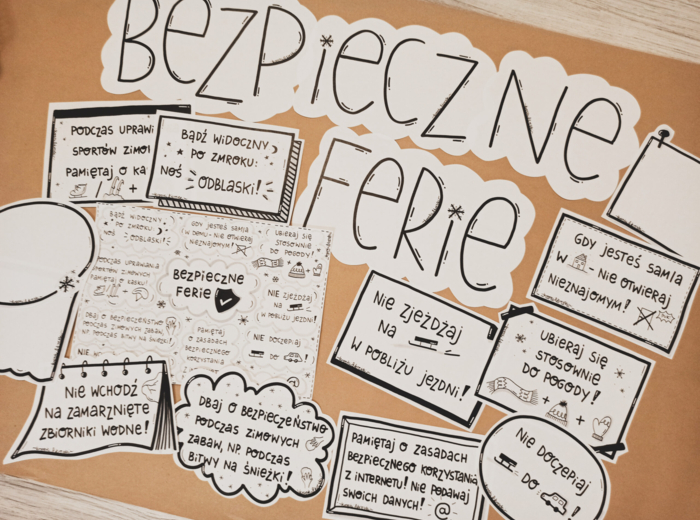 BEZPIECZNE
FERIE
PODCZAS UPRAWI
SPORTÓW ZIMO
PAMIĘTAJ O KA
+
BĄDŹ WIDOCZNY
PO ZMROKU:
NOŚ ODBLASKI!
BĄDŹ WIDOCZNY
PO ZMROKU:
NOŚ ODBLASKI!
GDY JESTEŚ SAM/A
W DOMU - NIE OTWIERAJ
NIEZNAJOMYM!
UBIERAJ SIĘ
STOSOWNIE
DO POGODY!
PODCZAS UPRAWIANIA
SPORTÓW ZIMOWYCH
PAMIĘTAJ O KASKU!
BEZPIECZNE
FERIE
NIE ZJEŻDŻAJ
NA
W POBLIŻU JEZDNI!
DBAJ O BEZPIECZEŃSTWO
PODCZAS ZIMOWYCH ZABAW,
NP. PODCZAS BITWY NA ŚNIEŻKI!
PAMIĘTAJ
O ZASADACH
BEZPIECZNEGO
KORZYSTANIA
NIE DOCZEPIAJ
DO
NIE
GDY JESTEŚ SAM/A
W - NIE OTWIERAJ
NIEZNAJOMYM!
NIE ZJEŻDŻAJ
NA
W POBLIŻU JEZDNI!
UBIERAJ SIĘ
STOSOWNIE
DO POGODY!
+ +
NIE WCHODŹ
NA ZAMARZNIĘTE
ZBIORNIKI WODNE!
DBAJ O BEZPIECZEŃSTWO
PODCZAS ZIMOWYCH
ZABAW, NP. PODCZAS
BITWY NA ŚNIEŻKI!
PAMIĘTAJ O ZASADACH
BEZPIECZNEGO KORZYSTANIA
Z INTERNETU! NIE PODAWAJ
SWOICH DANYCH! @
NIE DOCZEPIAJ
DO !